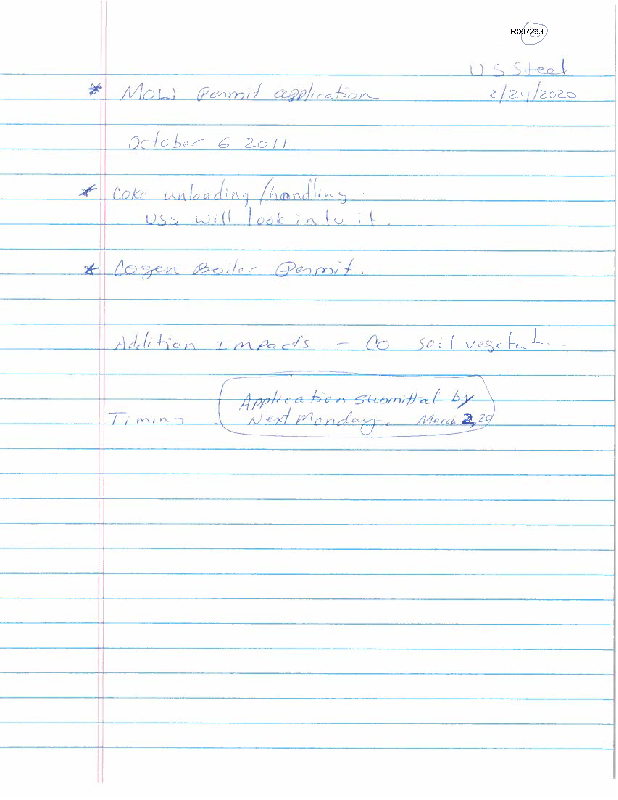 US Steel
* Permit application 2/24/2020
October 6 2011
* Coke unloading/handling -
USS will look into it.
* Cogen Boiler Permit.
Addition impacts - CO soil
Application Submittal by
Timing Next Monday. March 2, 20